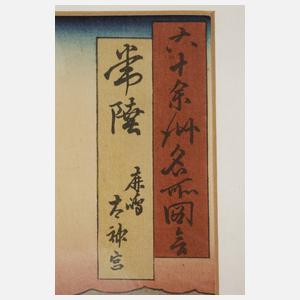 六十余州名所図会
常陸
鹿嶋
太神宮